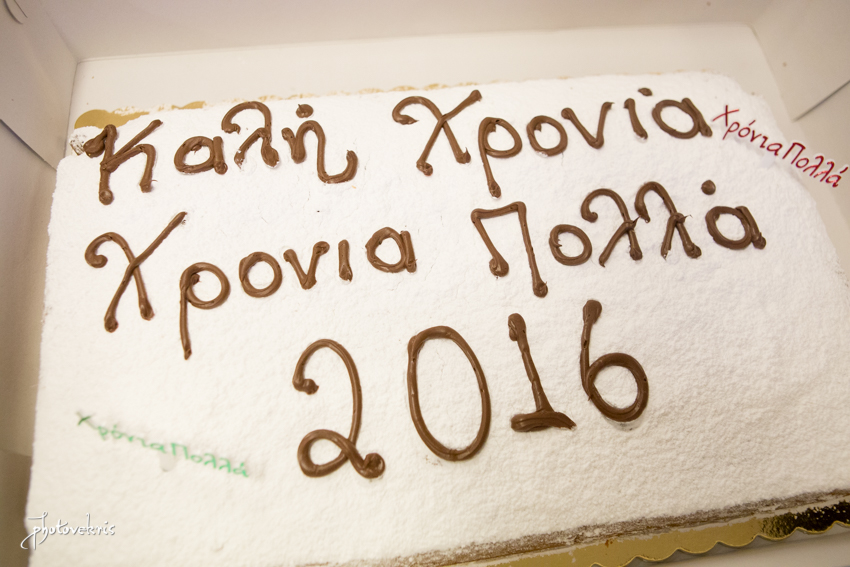 Καλή Χρονιά
Χρόνια Πολλά
Χρονια Πολλά
2016
Χρόνια Πολλά
photovekris